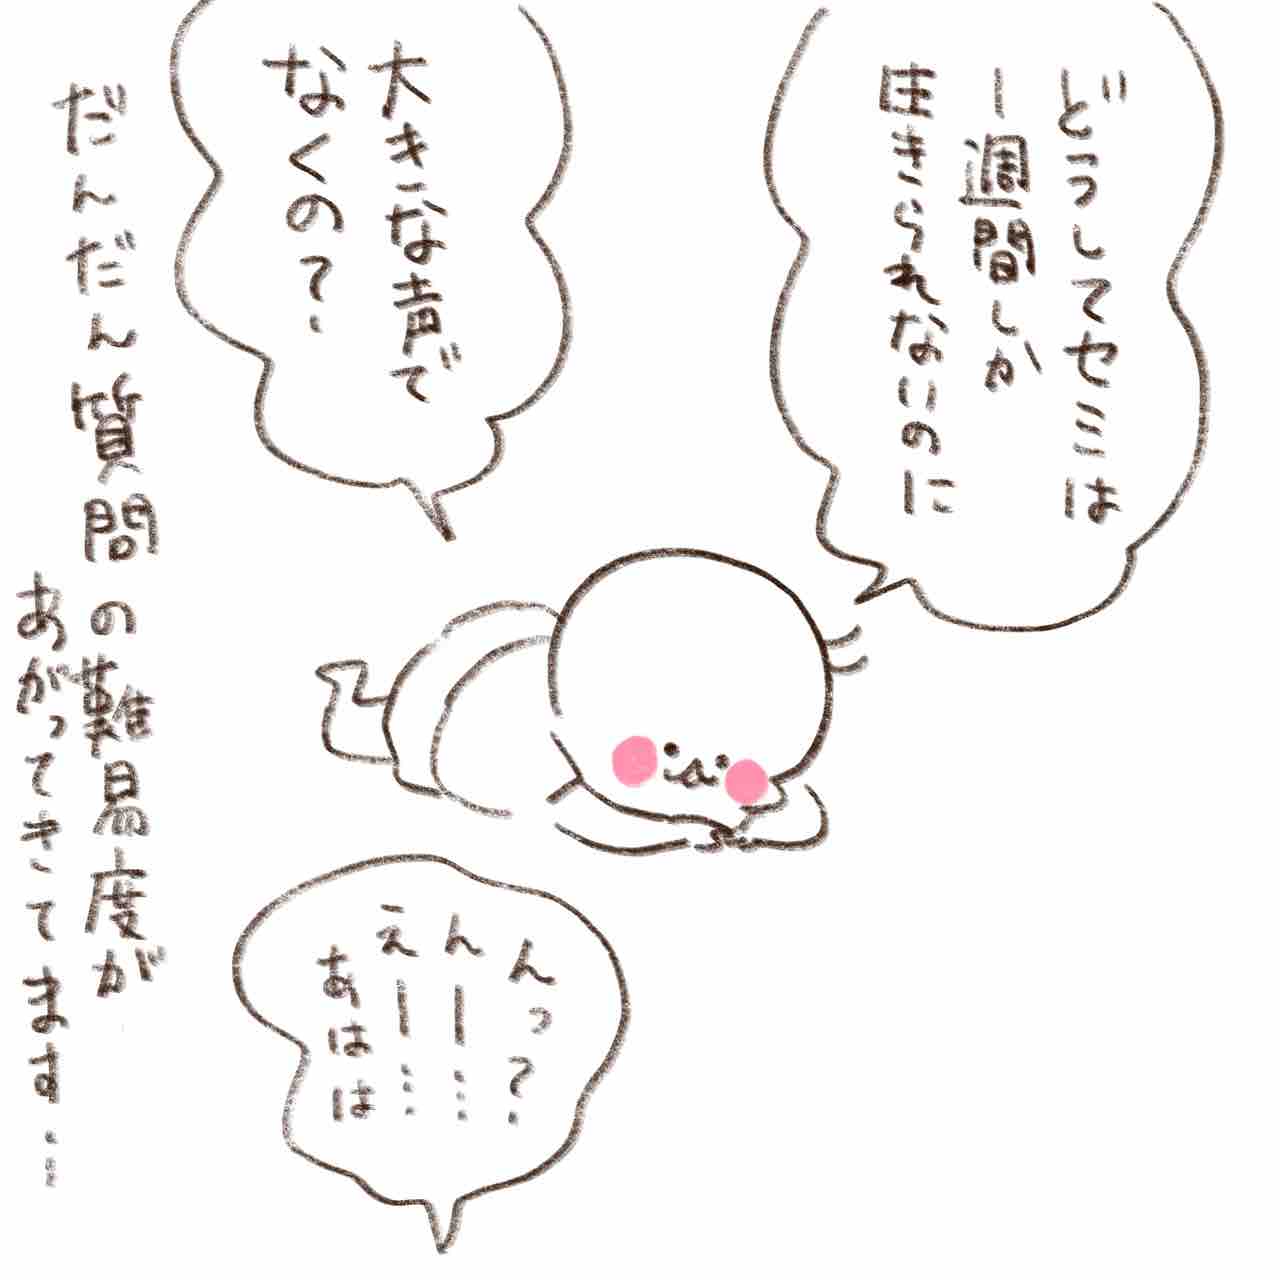 どうしてセミは
一週間しか
生きられないのに
大きな声で
なくの?
んっ?
んー…
えー…
あはは
だんだん質問の難易度が
あがってきてます…